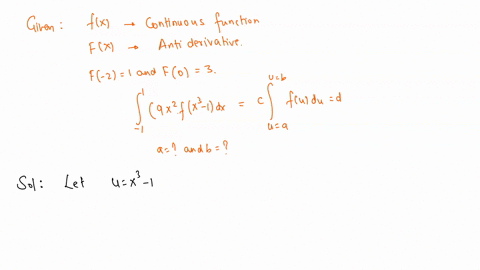 Given: f(x) → Continuous function
F(x) → Anti derivative.
F(-2)=1 and F(0)=3.
∫_{-1}^{1} (9x² f(x³-1)dx = c ∫_{u=a}^{u=b} f(u)du = d
a=? and b=?
Sol: Let u=x³-1